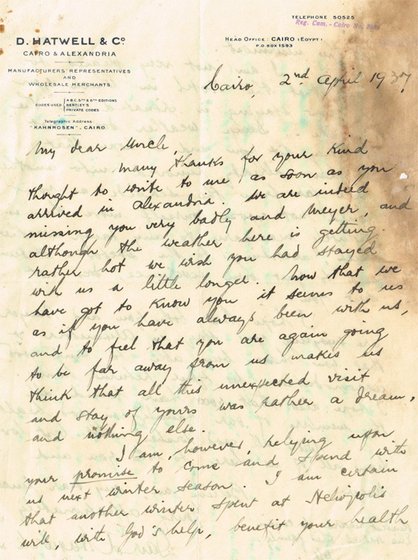 TELEPHONE 50525
Reg. Com. - Cairo No.
D. HATWELL & Co
CAIRO & ALEXANDRIA
MANUFACTURERS' REPRESENTATIVES
AND
WHOLESALE MERCHANTS
CODES USED
A.B.C. 5TH & 6TH EDITIONS
BENTLEY'S
PRIVATE CODES
Telegraphic Address:
"KAHNROSEN", CAIRO
HEAD OFFICE: CAIRO (EGYPT)
P.O. BOX 1593
Cairo, 2nd April 1937
My dear Uncle,
Many thanks for your kind
thought to write to us as soon as you
arrived in Alexandria. We are indeed
missing you very badly and Meyer, and
although the weather here is getting
rather hot we wish you had stayed
with us a little longer. Now that we
have got to know you it seems to us
as if you have always been with us,
and to feel that you are again going
to be far away from us makes us
think that all this unexpected visit
and stay of yours was rather a dream,
and nothing else.
I am, however, relying upon
your promise to come and spend with
us next winter season. I am certain
that another winter spent at Heliopolis
will, with God's help, benefit your health